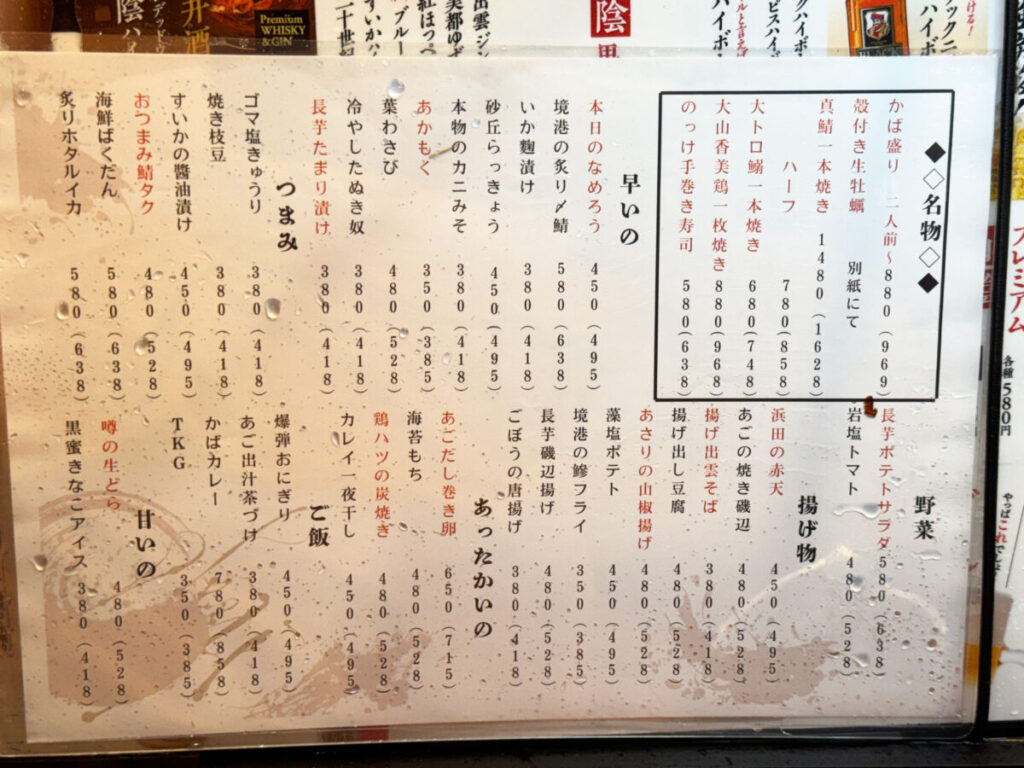 ◆◇名物◇◆
かば盛り 二人前～880(969)
殻付き生牡蠣 別紙にて
真鯖一本焼き 1480(1628)
ハーフ 780(858)
大トロ鰯一本焼き 680(748)
大山香美鶏一枚焼き 880(968)
のっけ手巻き寿司 580(638)
早いの
本日のなめろう 450(495)
境港の炙り〆鯖 580(638)
いか麹漬け 380(418)
砂丘らっきょう 450(495)
本物のカニみそ 380(418)
あかもく 350(385)
葉わさび 480(528)
冷やしたぬき奴 380(418)
長芋たまり漬け 380(418)
つまみ
ゴマ塩きゅうり 380(418)
焼き枝豆 380(418)
すいかの醬油漬け 450(495)
おつまみ鯖タク 480(528)
海鮮ばくだん 580(638)
炙りホタルイカ 580(638)
野菜
長芋ポテトサラダ 580(638)
岩塩トマト 480(528)
揚げ物
浜田の赤天 450(495)
あごの焼き磯辺 480(528)
揚げ出雲そば 380(418)
揚げ出し豆腐 480(528)
あさりの山椒揚げ 480(528)
藻塩ポテト 450(495)
境港の鯵フライ 350(385)
長芋磯辺揚げ 480(528)
ごぼうの唐揚げ 380(418)
あったかいの
あごだし巻き卵 650(715)
海苔もち 480(528)
鶏ハツの炭焼き 480(528)
カレイ一夜干し 450(495)
ご飯
爆弾おにぎり 450(495)
あご出汁茶づけ 380(418)
かばカレー 780(858)
TKG 350(385)
甘いの
噂の生どら 480(528)
黒蜜きなこアイス 380(418)
Premium
WHISKY
&GIN
プレミアム
各種580円
やっぱこれでしょ